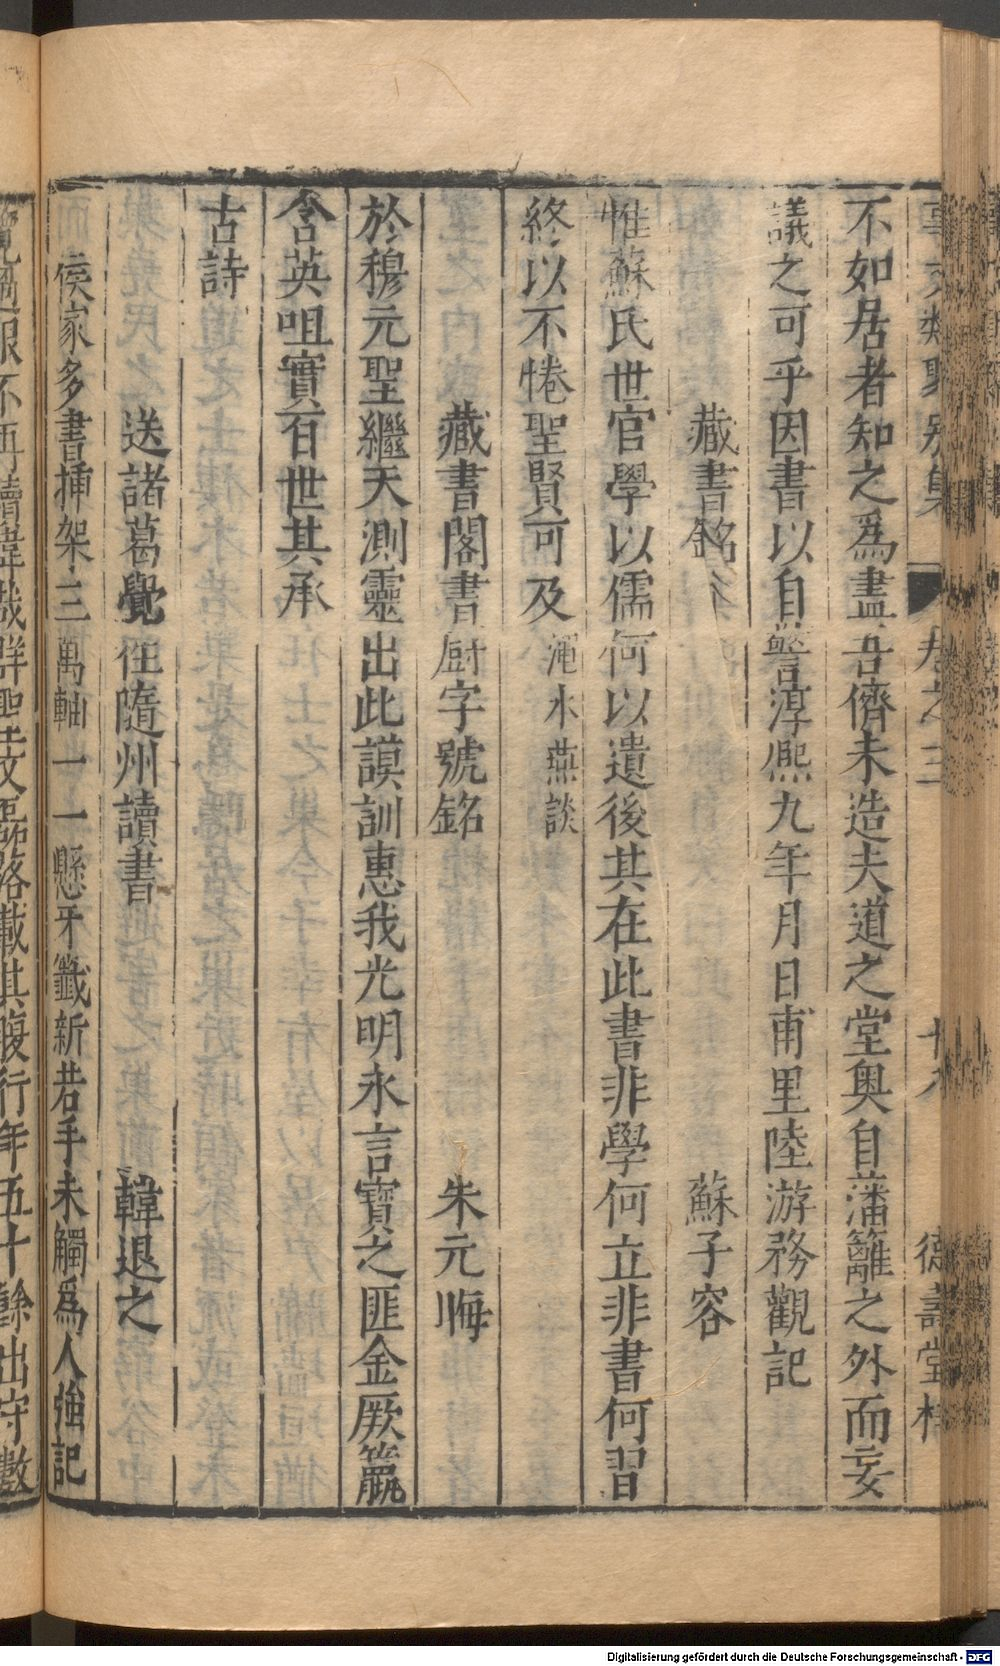 事文類聚別集 卷之三 十八 德壽堂梓
不如居者知之爲盡吾儕未造夫道之堂奧自藩籬之外而妄
議之可乎因書以自警淳熈九年月日甫里陸游務觀記
藏書銘 蘇子容
惟蘇氏世官學以儒何以遺後其在此書非學何立非書何習
終以不惓聖賢可及 澠水燕談
藏書閣書厨字號銘 朱元晦
於穆元聖繼天測靈出此謨訓惠我光明永言寶之匪金厥籯
含英咀實百世其承
古詩
送諸葛覺徃隨州讀書 韓退之
侯家多書揷架三萬軸一一懸牙籤新若手未觸爲人強記
覽過眼不再讀偉哉群聖文磊落載其腹行年五十餘出守數
Digitalisierung gefördert durch die Deutsche Forschungsgemeinschaft - DFG